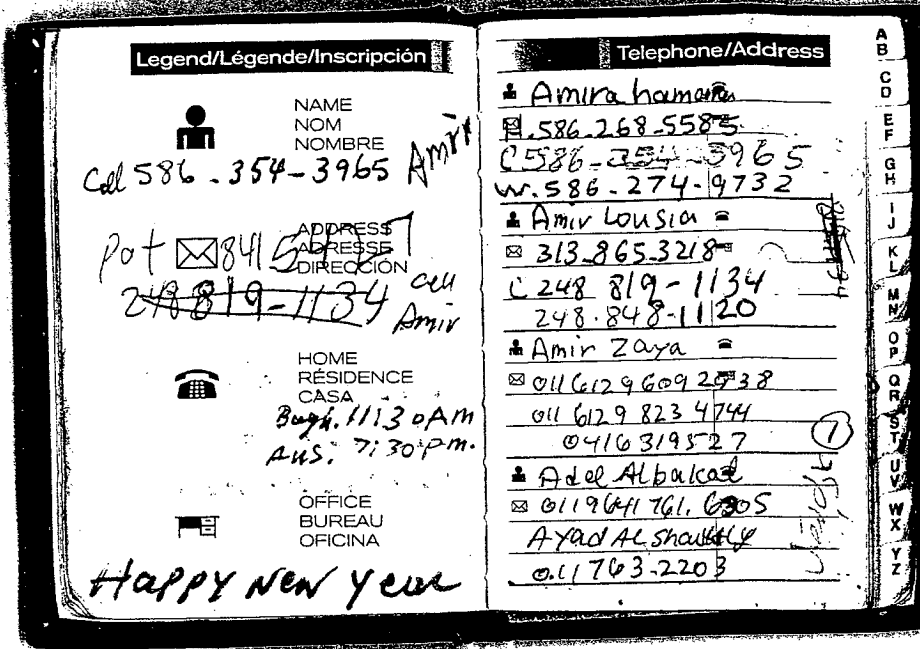 Legend/Légende/Inscripción
NAME
NOM
NOMBRE
Cell 586-354-3965 Amir
ADDRESS
ADRESSE
DIRECCIÓN
Pat 841
248 819-1134 cell
Amir
HOME
RÉSIDENCE
CASA
Bagh. 11:30 AM
AUS: 7:30 P.m.
OFFICE
BUREAU
OFICINA
HAPPY New Year
Telephone/Address
Amira
586-268-5585
C 586-354-3965
W. 586-274-9732
Amir Lousia
313-865-3218
C 248 819-1134
248-848-1120
Amir Zaya
011 6129 609 2538
011 6129 823 4744
0416319527
1
Adel Albalcad
011 9641 761. 6305
Ayad AL
0.11 763-2203
A
B
C
D
E
F
G
H
I
J
K
L
M
N
O
P
Q
R
S
T
U
V
W
X
Y
Z